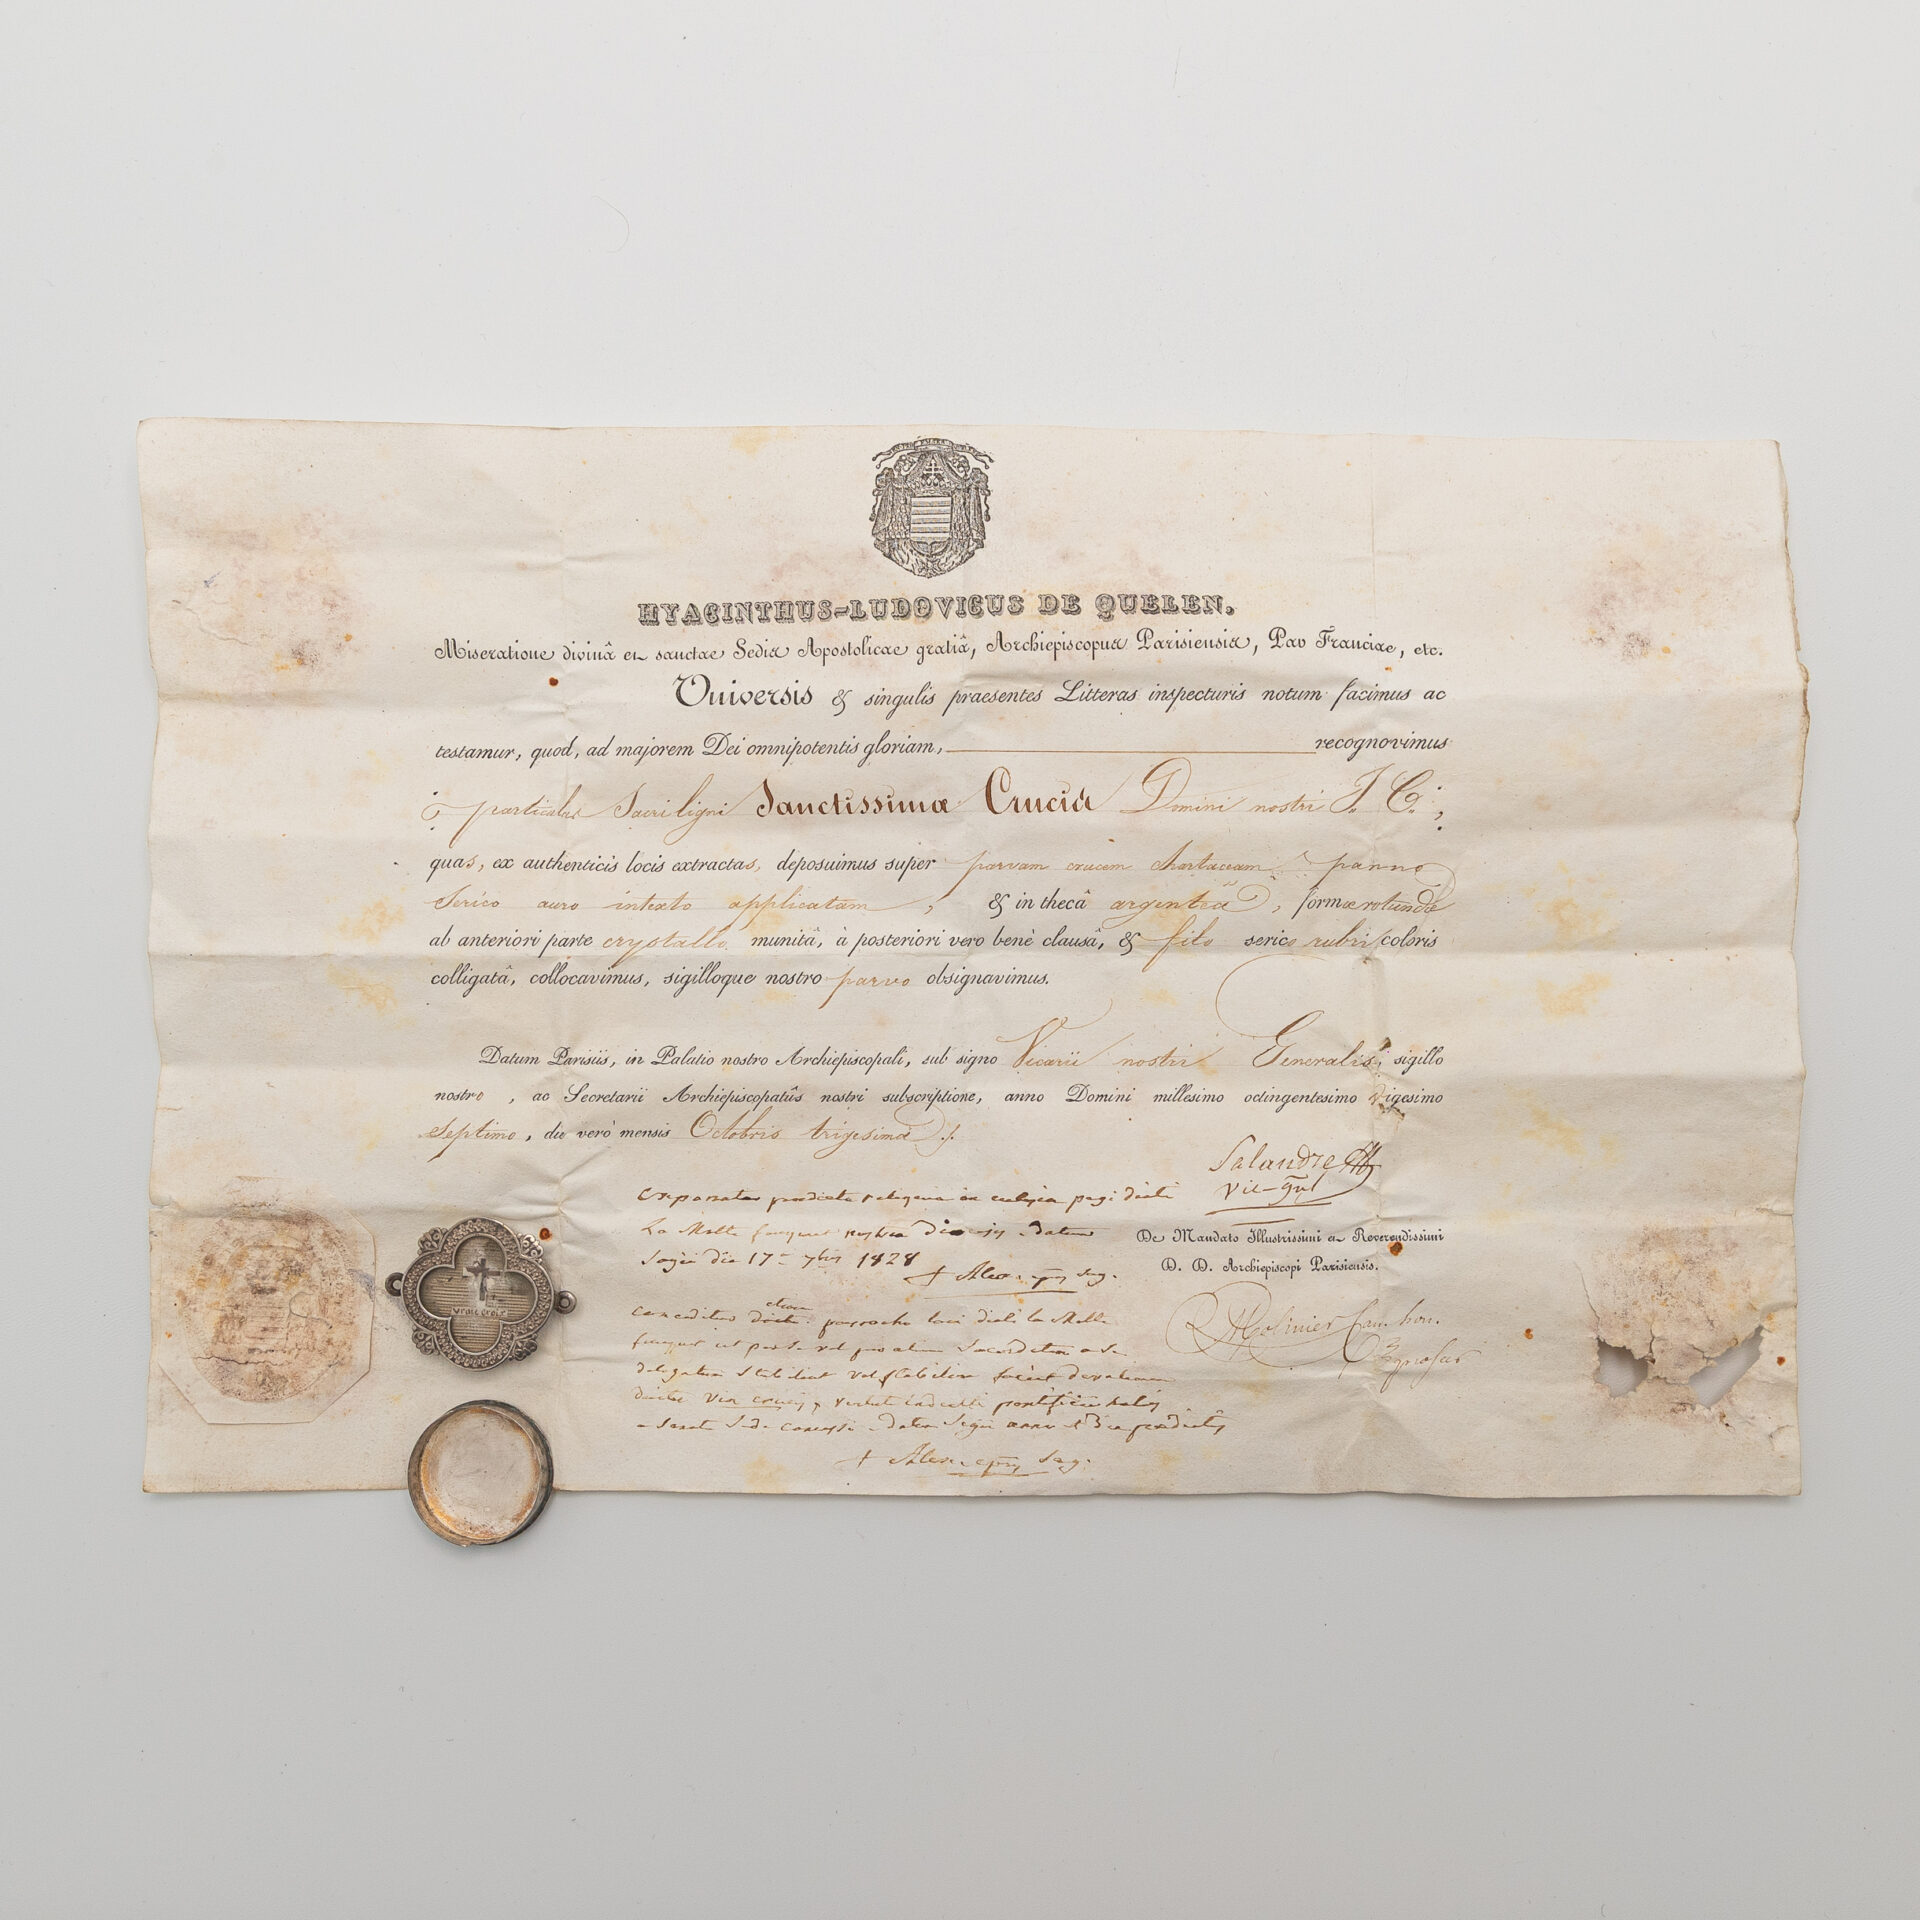 HYACINTHUS-LUDOVICUS DE QUELEN.
Miseratione divinâ et sanctae Sedis Apostolicae gratiâ, Archiepiscopus Parisiensis, Par Franciae, etc.
Universis & singulis praesentes Litteras inspecturis notum facimus ac
testamur, quod, ad majorem Dei omnipotentis gloriam, recognovimus
particulas Sacri ligni Sanctissimæ Crucis Domini nostri J. C.,
quas, ex authenticis locis extractas, deposuimus super parvam crucem chartaceam panno
Serico auro intexto applicatam, & in thecâ argenteâ, formæ rotundæ
ab anteriori parte crystallo munitâ, à posteriori vero benè clausâ, & filo serico rubri coloris
colligatâ, collocavimus, sigilloque nostro parvo obsignavimus.
Datum Parisiis, in Palatio nostro Archiepiscopali, sub signo Vicarii nostri Generalis, sigillo
nostro, ac Secretarii Archiepiscopatûs nostri subscriptione, anno Domini millesimo octingentesimo vigesimo
Septimo, die verò mensis Octobris trigesima.
Salandre
vic-gnl
De Mandato Illustrissimi et Reverendissimi
D. D. Archiepiscopi Parisiensis.
Molinier can. hon.
in ecclesia pagi dicti
La Motte fouquet nostra diocesis datum
Sagii die 17 7bris 1828
+ Alex. epus Sag.
etiam
parocho loci dicti la Motte
fouquet ut per se vel per alium Sacerdotem a se
delegatum
dictae via crucis, pontificii
a Sancta Sede
+ Alex. epus Sag.
vraie croix